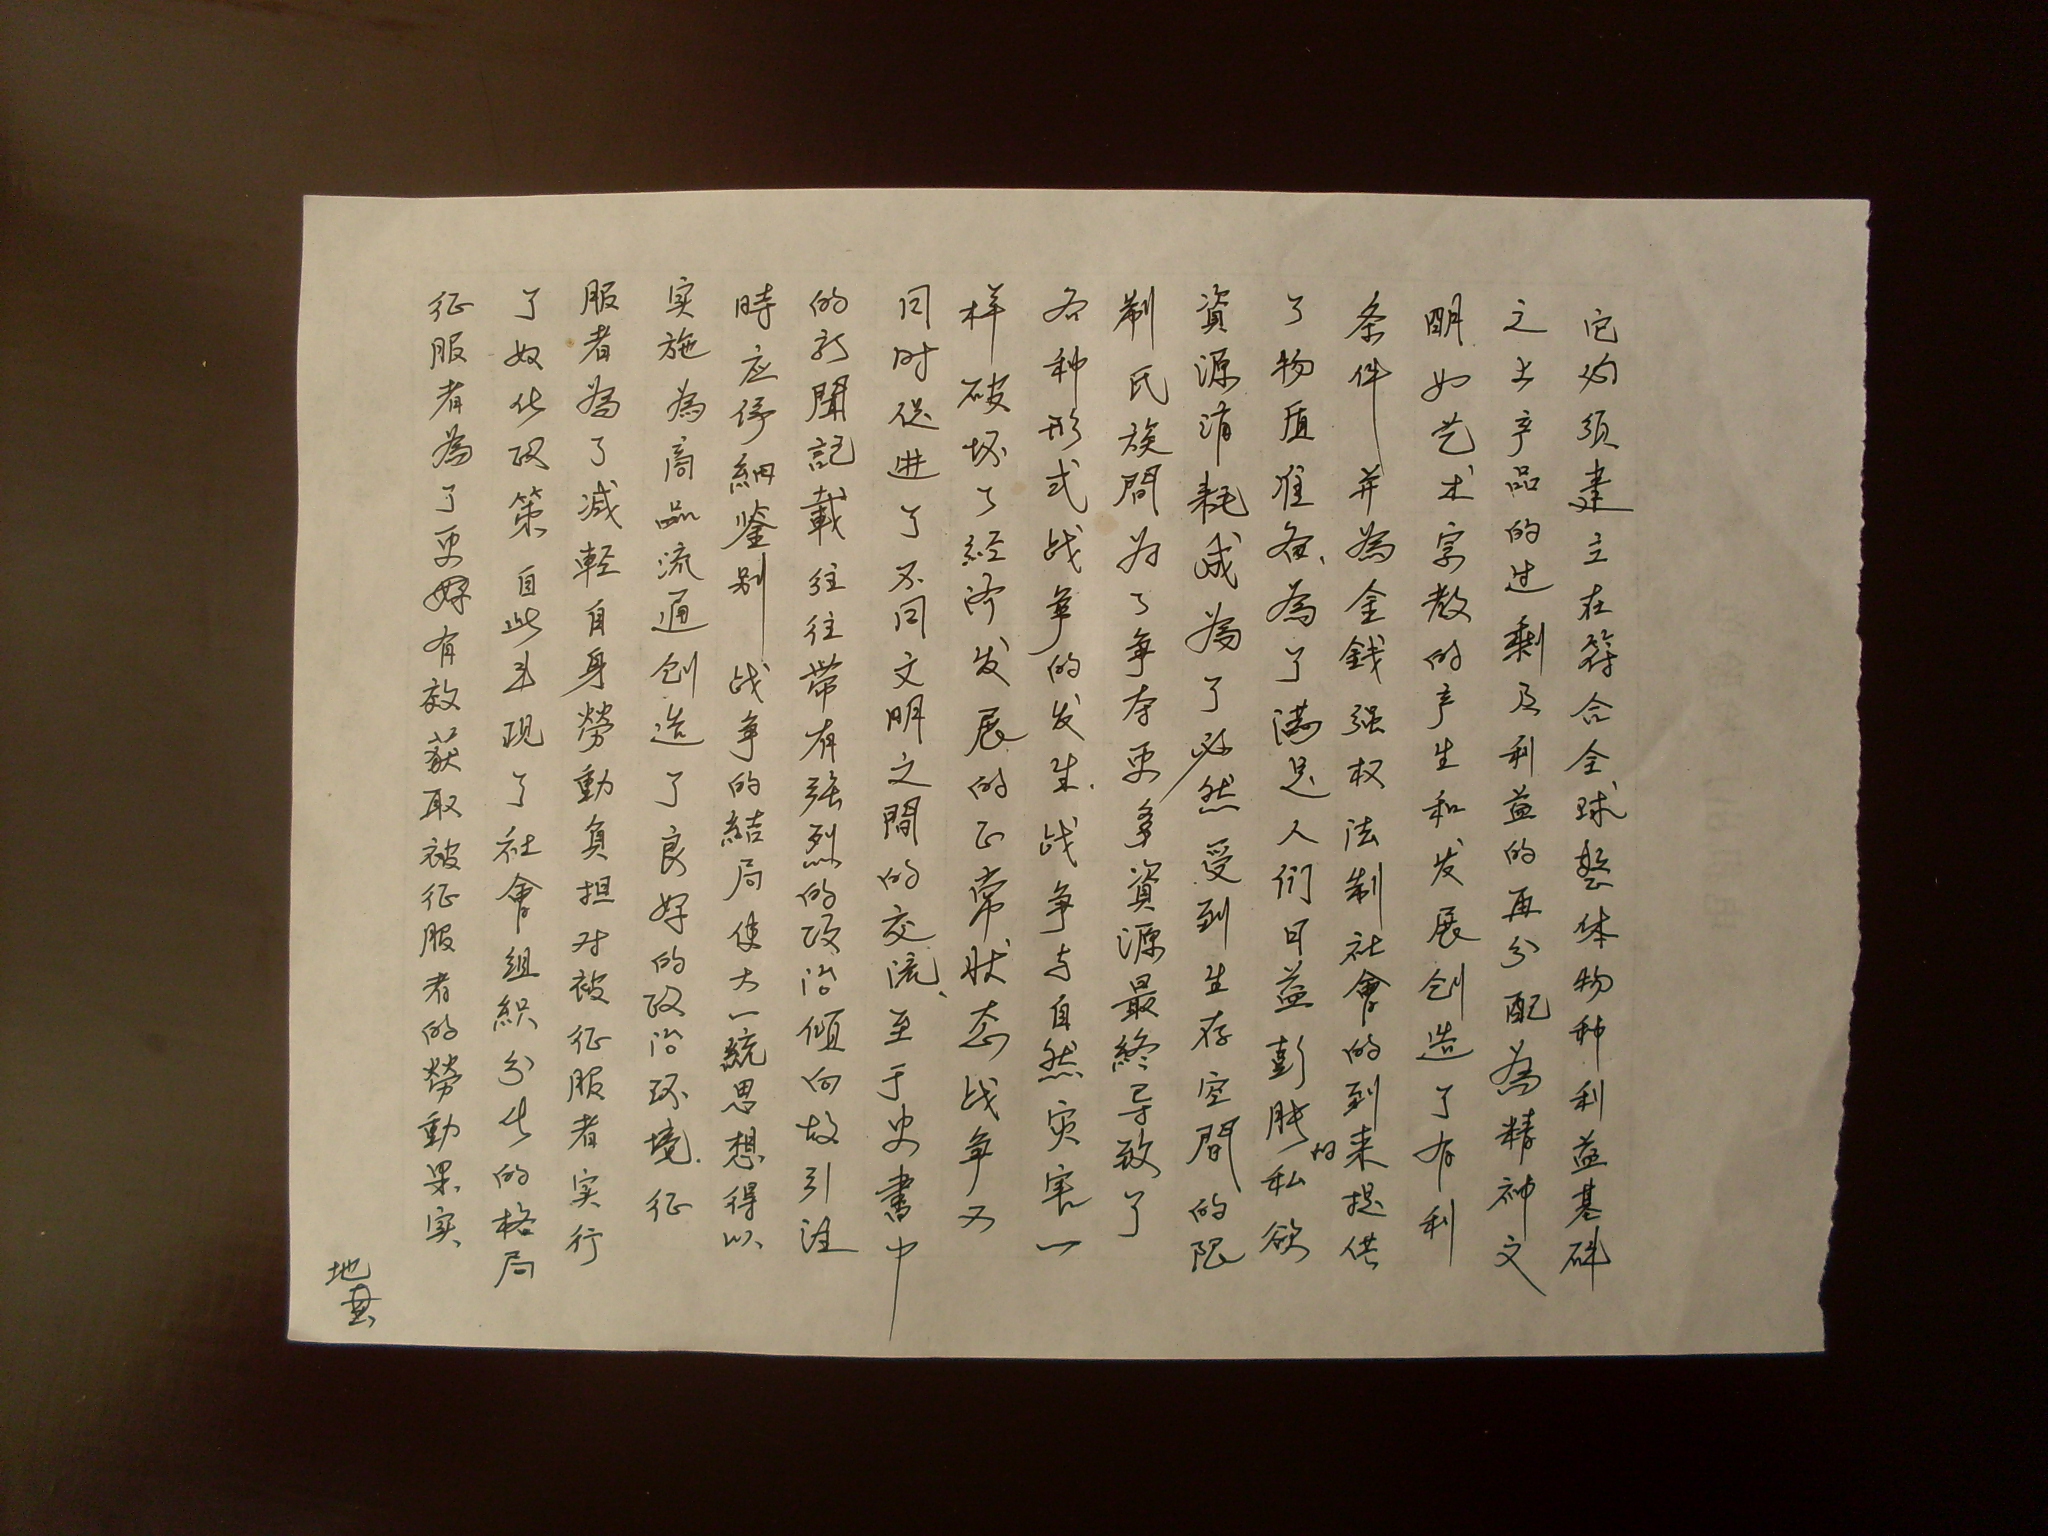 它必须建立在符合全球整体物种利益基础
之上产品的过剩及利益的再分配為精神文
明如艺术宗教的产生和发展创造了有利
条件并為金錢强权法制社會的到来提供
了物质准备、為了满足人们日益彭胀的私欲
資源消耗成為了必然受到生存空間的限
制民族間为了争夺更多資源最終导致了
各种形式战争的发生、战争与自然灾害一
样破坏了经济发展的正常状态战争又
同时促进了不同文明之間的交流、至于史書中
的新聞記載往往带有强烈的政治倾向故引注
時应仔細鉴别战争的結局使大一統思想得以
实施為商品流通创造了良好的政治环境、征
服者為了减輕自身勞動負担对被征服者实行
了奴化政策自此出现了社會組織分化的格局
征服者為了更好有效获取被征服者的勞動果实